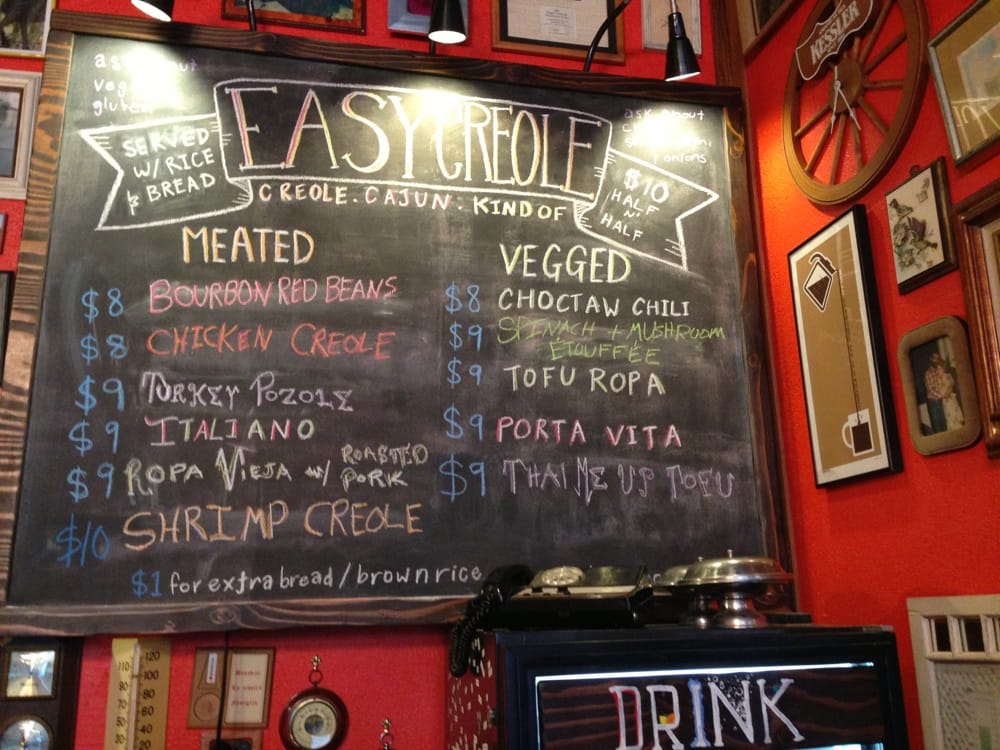 ask about
gluten
EASY CREOLE
SERVED
W/ RICE
& BREAD
CREOLE. CAJUN. KIND OF
ask about
onions
$10
HALF
N'
HALF
MEATED
$8 BOURBON RED BEANS
$8 CHICKEN CREOLE
$9 TURKEY POZOLE
$9 ITALIANO
$9 ROPA VIEJA w/ ROASTED
PORK
$10 SHRIMP CREOLE
VEGGED
$8 CHOCTAW CHILI
$9 SPINACH + MUSHROOM
ÉTOUFFÉE
$9 TOFU ROPA
$9 PORTA VITA
$9 THAI ME UP TOFU
$1 for extra bread / brown rice
KESSLER
DRINK
110
120
100
80
60
40
20